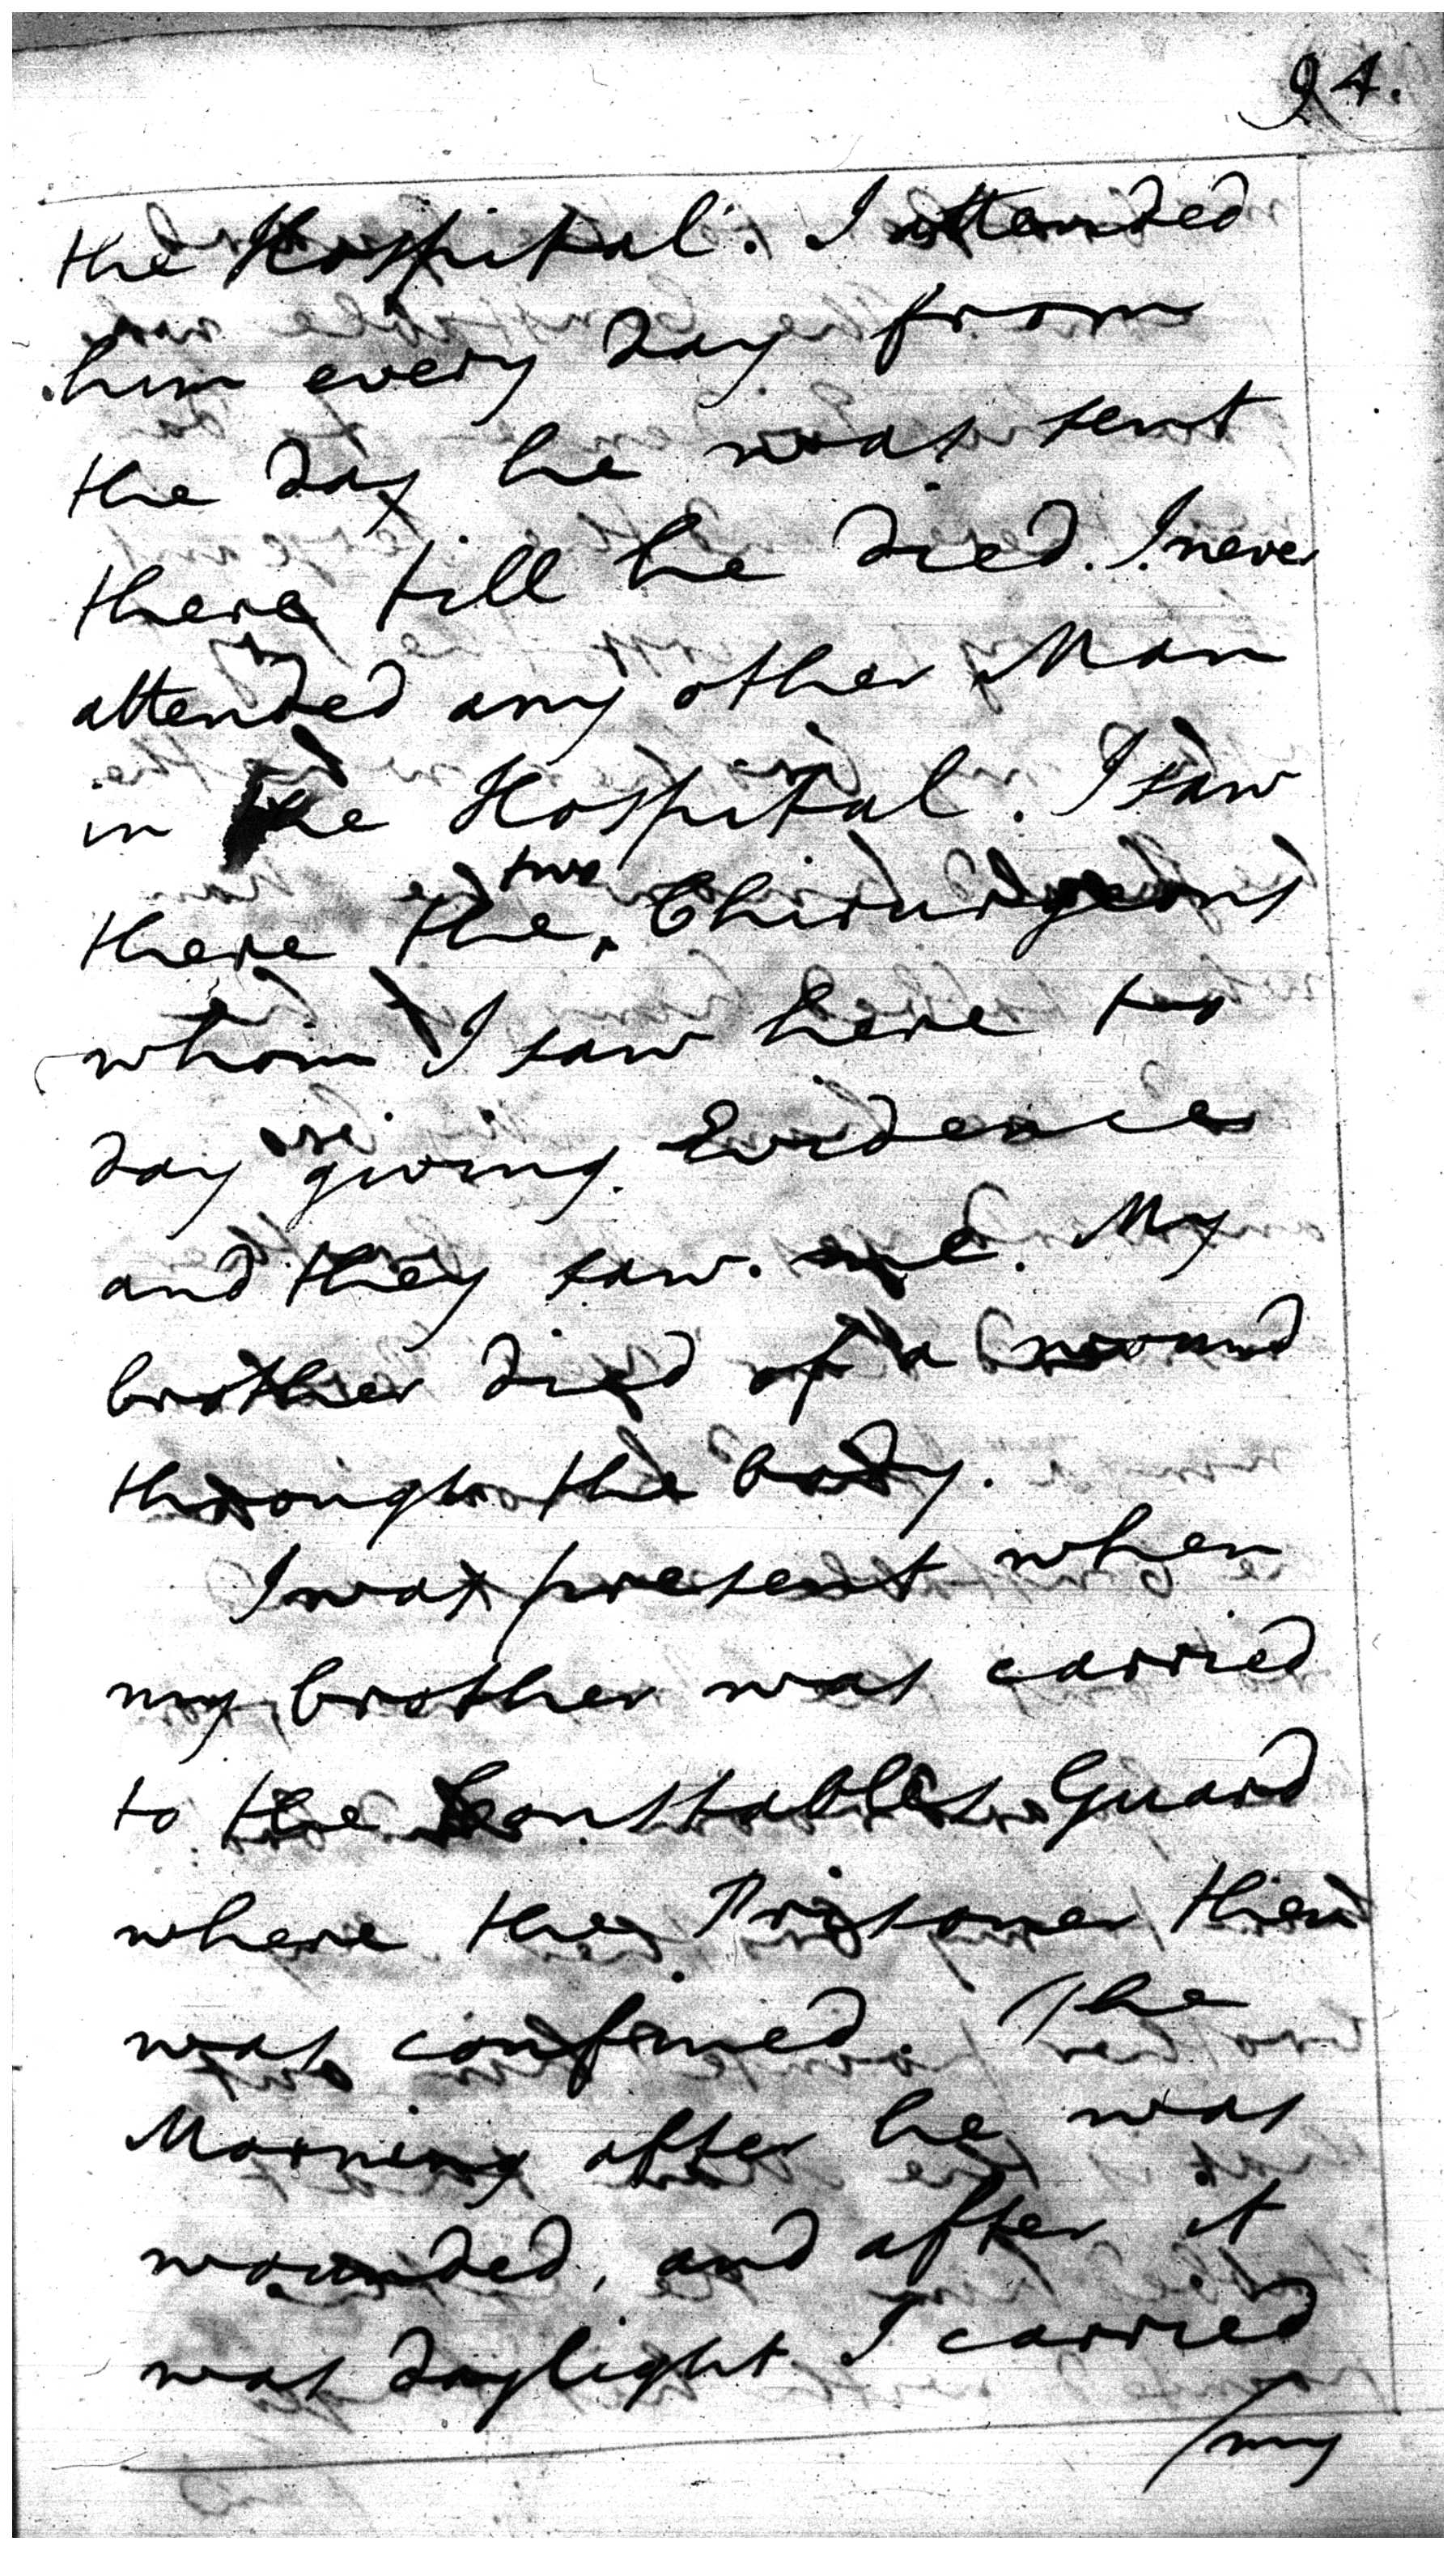 24.
the Hospital. I attended
him every day from
the day he was sent
there till he died. I never
attended any other Man
in the Hospital. I saw
two
there the Chirurgeons
whom I saw here to
day giving Evidence
and they saw me. My
brother died of a wound
through the body.
I was present when
my brother was carried
to the Constables Guard
where the Prisoner then
was confined. The
Morning after he was
wounded, and after it
was daylight I carried
my